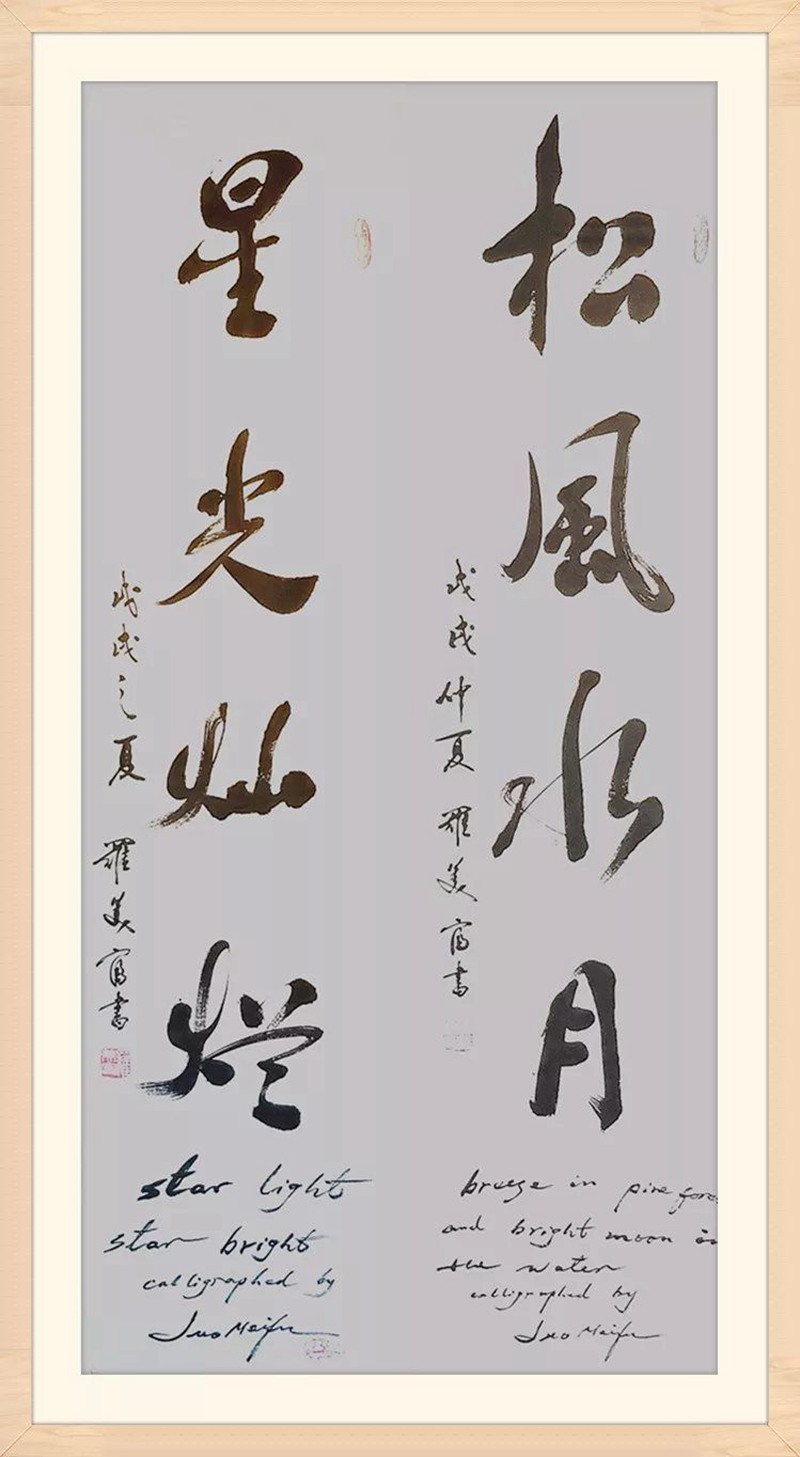 松風水月
戊戌仲夏 羅美富書
breeze in pine fores
and bright moon in
the water
calligraphed by
Luo Meifu
星光灿烂
戊戌之夏 羅美富書
star light
star bright
calligraphed by
Luo Meifu